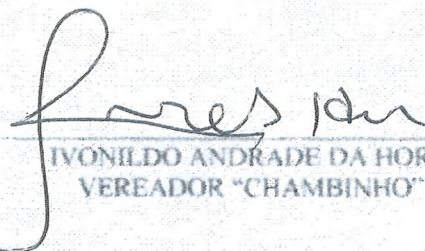 IVONILDO ANDRADE DA HOR
VEREADOR “CHAMBINHO”